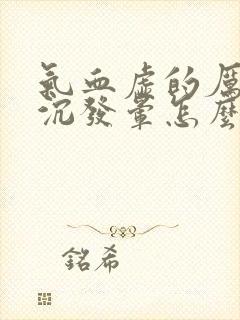 氣血虛的厲
沉發暈怎麼
銘希